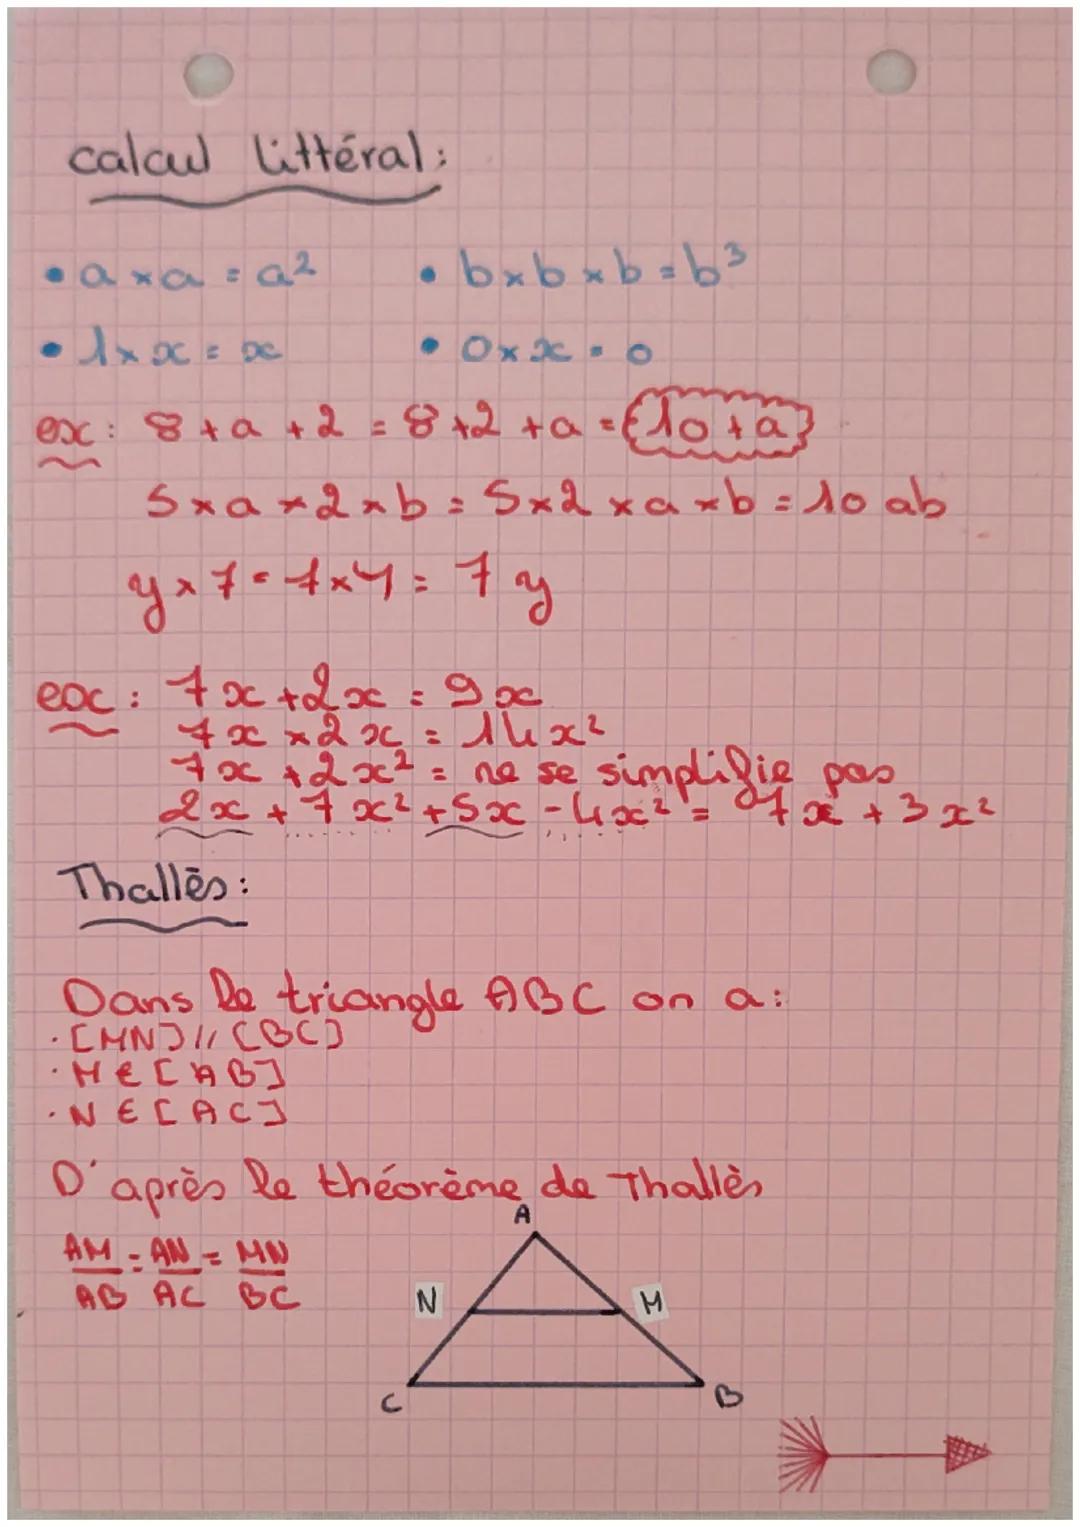 calcul littéral:
• a × a = a² • b × b × b = b³
• 1 × x = x • 0 × x = 0
ex: 8 + a + 2 = 8 + 2 + a = 10 + a
5 × a × 2 × b = 5 × 2 × a × b = 10 ab
y × 7 = 7 × y = 7 y
ex: 7x + 2x = 9x
7x × 2x = 14x²
7x + 2x² = ne se simplifie pas
2x + 7x² + 5x - 4x² = 7x + 3x²
Thallès:
Dans le triangle ABC on a:
· [MN] // [BC]
· M ∈ [AB]
· N ∈ [AC]
D'après le théorème de Thallès
AM/AB = AN/AC = MN/BC
A
N M
C B